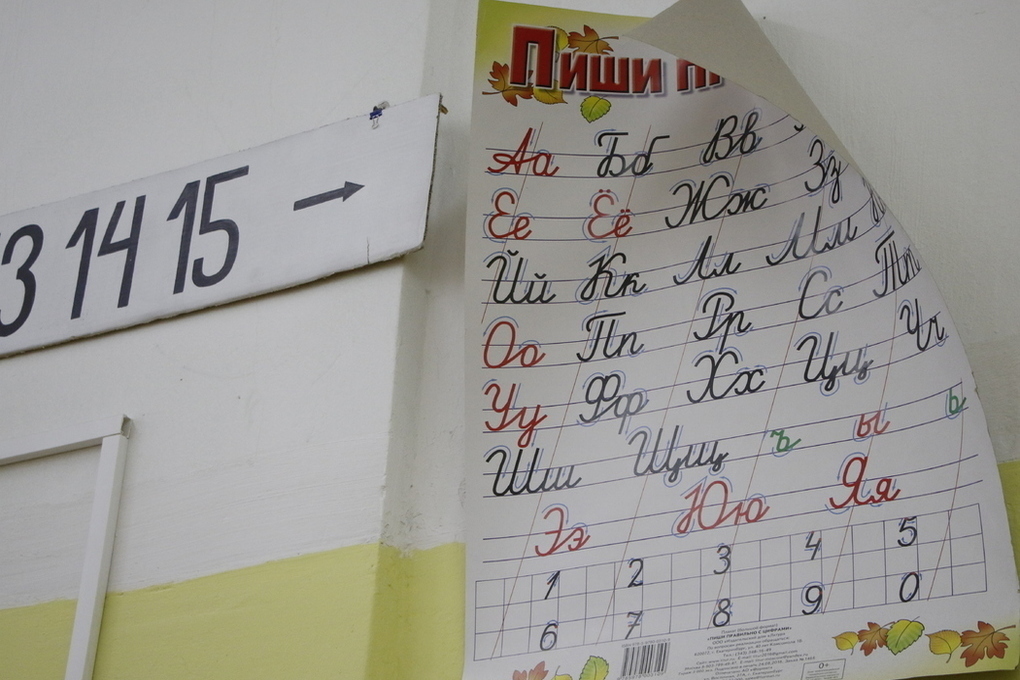 3 14 15 →
Пиши
Аа Бб Вв
Ее Ёё Жж Зз
Йй Кк Лл Мм
Оо Пп Рр Сс Тт
Уу Фф Хх Цц Чч
Шш Щщ ъ ы ь
Ээ Юю Яя
1 2 3 4 5
6 7 8 9 0
«ПИШИ ПРАВИЛЬНО С ЦИФРАМИ»
0+